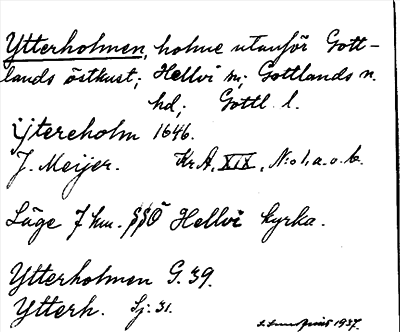 Ytterholmen, holme utanför Gott-
lands östkust; Hellvi sn; Gottlands n.
hd; Gottl. l.
Ytereholm 1646.
J. Meijer. Kr A, XIX, N:o 1, a. o. b.
Läge 7 km. SSO Hellvi kyrka.
Ytterholmen G. 39.
Ytterh. Sj: 31.
1937.